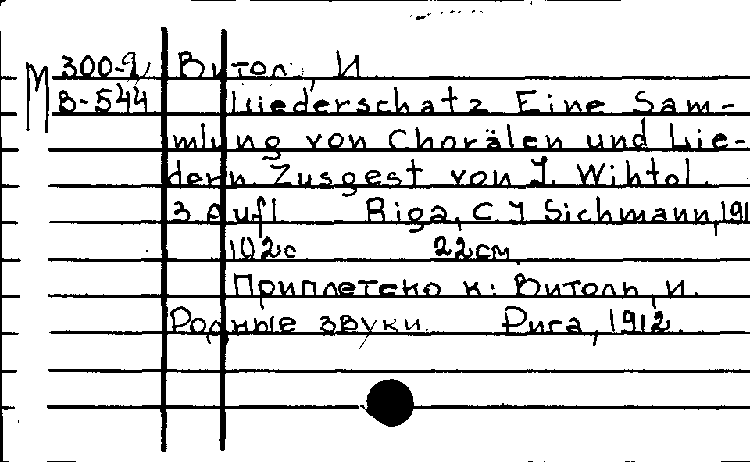 М 300-9 Витол, И
В-544 Liederschatz Eine Sam-
mlung von Chorälen und Lie-
dern Zusgest von J. Wihtol.
3 Aufl Riga, C. J Sichmann, 191
102с 22см.
Приплетено к: Витоль, И.
Родные звуки. Рига, 1912.